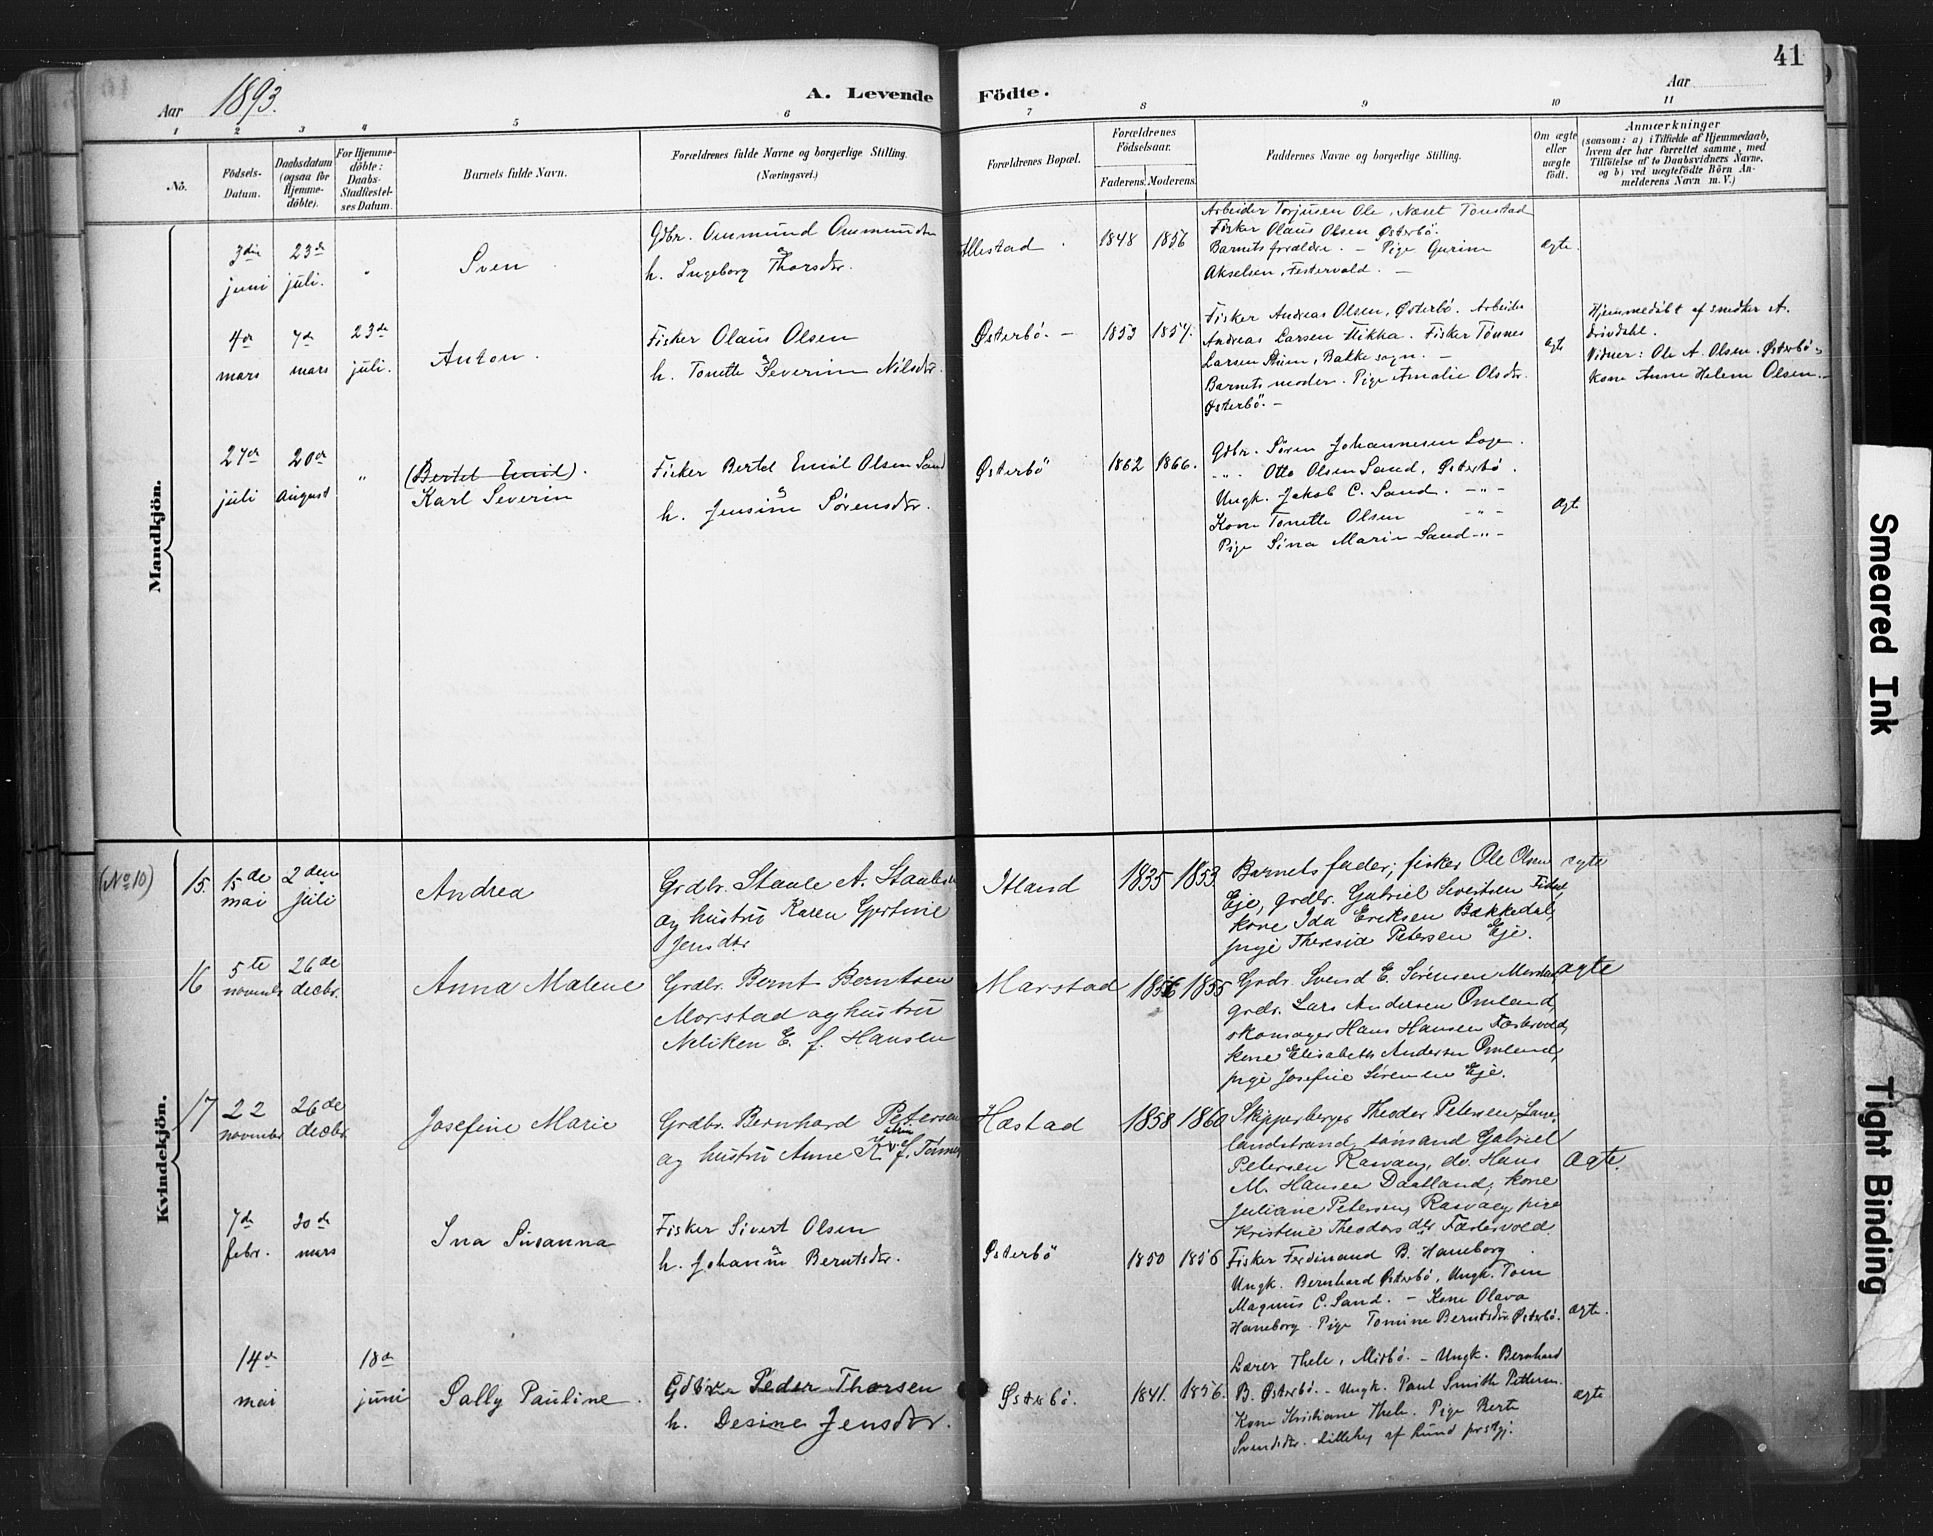 41
Aar 1893.
A. Levende Födte.
Aar
1 2 3 4 5 6 7 8 9 10 11
No.
Födsels-Datum.
Daabsdatum (ogsaa for Hjemme-döbte).
For Hjemme-döbte: Daabs-Stadfæstel-ses Datum.
Barnets fulde Navn.
Forældrenes fulde Navne og borgerlige Stilling. (Næringsvei.)
Forældrenes Bopæl.
Forældrenes Födselsaar.
Faderens. Moderens.
Faddernes Navne og borgerlige Stilling.
Om ægte eller uægte födt.
Anmærkninger
(saasom: a) i Tilfælde af Hjemmedaab, hvem der har forrettet samme, med Tilföielse af to Daabsvidners Navne, og b) ved uægtefödte Börn An-melderens Navn m. V.)
Mandkjön.
3die juni
23de juli.
"
Sven
Gdbr. Ommund Ommundsen
h. Ingeborg Thorsdtr.
Allestad
1848 1856
Arbeider Torjusen Ole, Næset Tonstad
Fisker Olaus Olsen Østerbö.
Barnets forældre. – Pige Gurine
Akselsen, Festervold. –
ægte.
4de mars
7de mars
23de juli.
Anton.
Fisker Olaus Olsen
h. Tonette Severine Nilsdtr.
Østerbö. –
1853 1854.
Fisker Andreas Olsen, Østerbö. Arbeider
Andreas Larsen Flikka. Fisker Tönnes
Larsen Stuen, Bakke sogn. –
Barnets moder. Pige Amalie Olsdtr.
Østerbö. –
ægte
Hjemmedöbt af snedker A.
Drivdahl.
Vidner: Ole A. Olsen. Østerbö
Kone Anne Helene Olsen. –
27de juli
20de August
"
(Bertel Emil).
Karl Severin
Fisker Bertel Emil Olsen Sand
h. Jensine Sørensdtr.
Østerbö
1862 1866.
Gdbr. Søren Johannesen Loge.
-"- Otto Olsen Sand, Østerbö.
Ungk. Jakob C. Sand. -"-
Kone Tonette Olsen -"-
Pige Sina Marie Sand -"-
ægte
Kvindekjön.
(No 10)
15
15de mai
2den Juli
Andrea
Grdbr. Staale A. Staalesen
og hustru Karen Gjertine
Jensdtr
Itland
1835 1853
Barnets fader; fisker Ole Olsen
Eje, grdbr. Gabriel Sivertsen
kone Ida Eriksen Bækkedal,
pige Theresia Petersen Eje.
ægte
16
5te novembr
26de decbr.
Anna Malene
Grdbr. Bernt Berntsen
Morstad og hustru
Neliken E. f. Hansen
Marstad
1856 1855
Grdr. Svend E. Sörensen
grdr. Lars Andersen Omland,
skomager Hans Hansen Fæstervold,
kone Elisabeth Andersen Omland,
pige Josefine Sörensen Eje.
ægte
17
22 november
26de decbr
Josefine Marie
Grdbr. Bernhard Petersen
og hustru Anne Katrine f. Tönnes
Hæstad
1858 1860
Skipperborger Theodor Petersen,
landstrand, sömand Gabriel
Petersen Rasvaag, do. Hans
M. Hansen Daatland, kone
Juliane Petersen, Rasvaag, pige
Kristine Theodors dtr Fæstervold.
Ægte.
7de febr.
30de mars
Ina Susanna
Fisker Sivert Olsen
h. Johanne Berntsdtr.
Østerbö
1850 1856
Fisker Ferdinand B. Haneborg
Ungk. Bernhard Østerbö, Ungk. Tom
Magnus C. Sand. – Kone Olava
Haneborg. Pige Tomine Berntsdtr Østerbö.
ægte.
14de mai
18de juni
Sally Pauline.
Gdbr. Peder Thorsen
h. Desine Jensdtr.
Østerbö.
1841. 1856.
Lærer Thele, Midbö. – Ungk. Bernhard
B. Østerbö. – Ungk. Paul Smith Pettersen.
Kone Kristiane Thele. Pige Berte
Svendsdtr.
ægte
Smeared Ink
Tight Binding